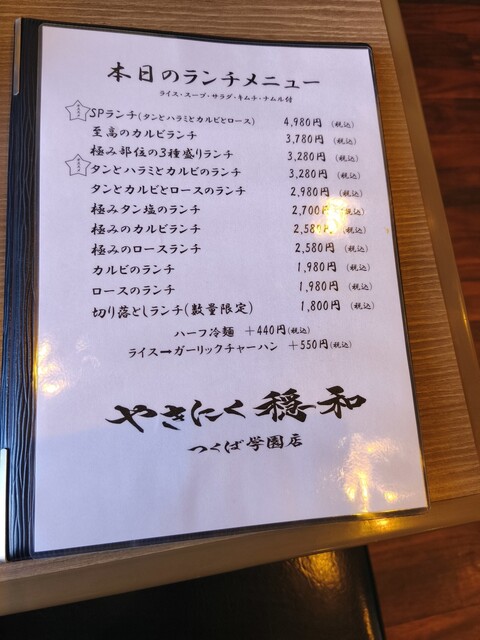 本日のランチメニュー
ライス・スープ・サラダ・キムチ・ナムル付
SPランチ(タンとハラミとカルビとロース) 4,980円 (税込)
至高のカルビランチ 3,780円 (税込)
極み部位の3種盛りランチ 3,280円 (税込)
タンとハラミとカルビのランチ 3,280円 (税込)
タンとカルビとロースのランチ 2,980円 (税込)
極みタン塩のランチ 2,700円 (税込)
極みのカルビランチ 2,580円 (税込)
極みのロースランチ 2,580円 (税込)
カルビのランチ 1,980円 (税込)
ロースのランチ 1,980円 (税込)
切り落としランチ(数量限定) 1,800円 (税込)
ハーフ冷麺 +440円(税込)
ライス➡ガーリックチャーハン +550円(税込)
やきにく 穏和
つくば学園店